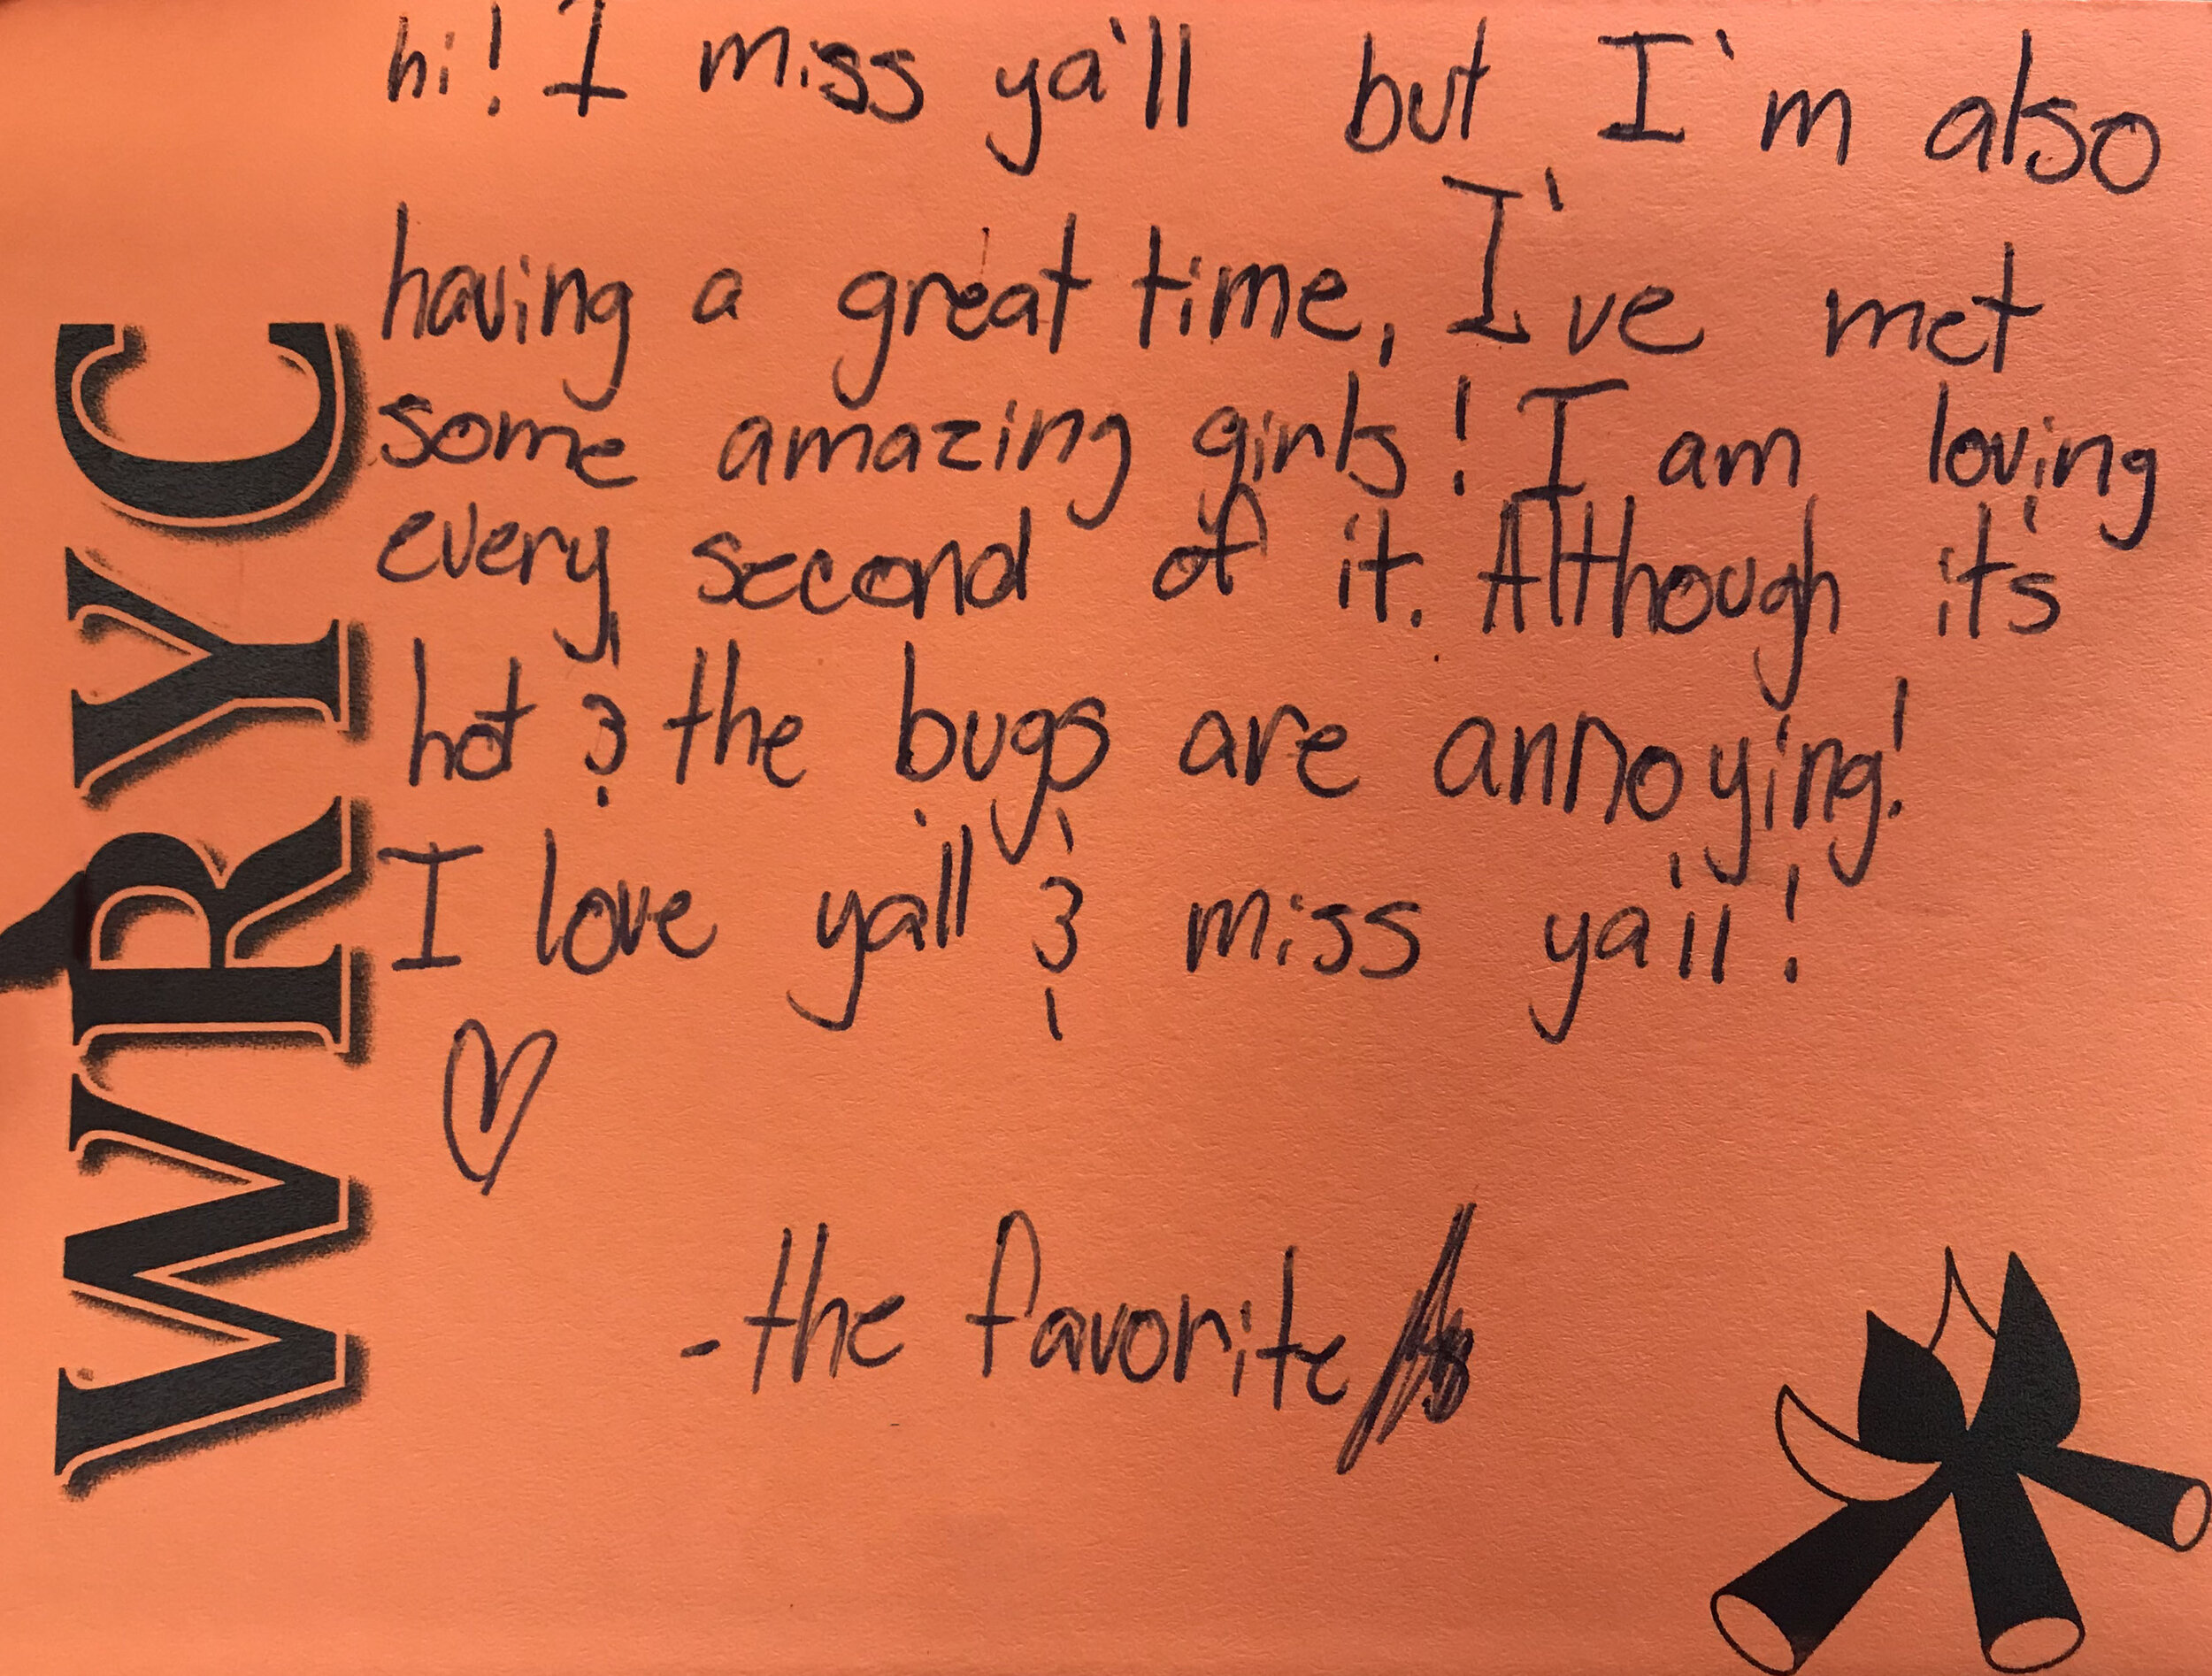 WRYC
hi! I miss ya'll but I'm also
having a great time, I've met
some amazing girls! I am loving
every second of it. Although it's
hot & the bugs are annoying!
I love yall & miss yall!
-the favorite